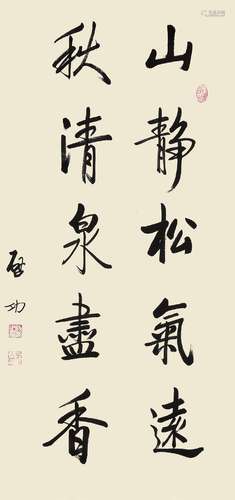 山静松氣遠
秋清泉盡香
啓功